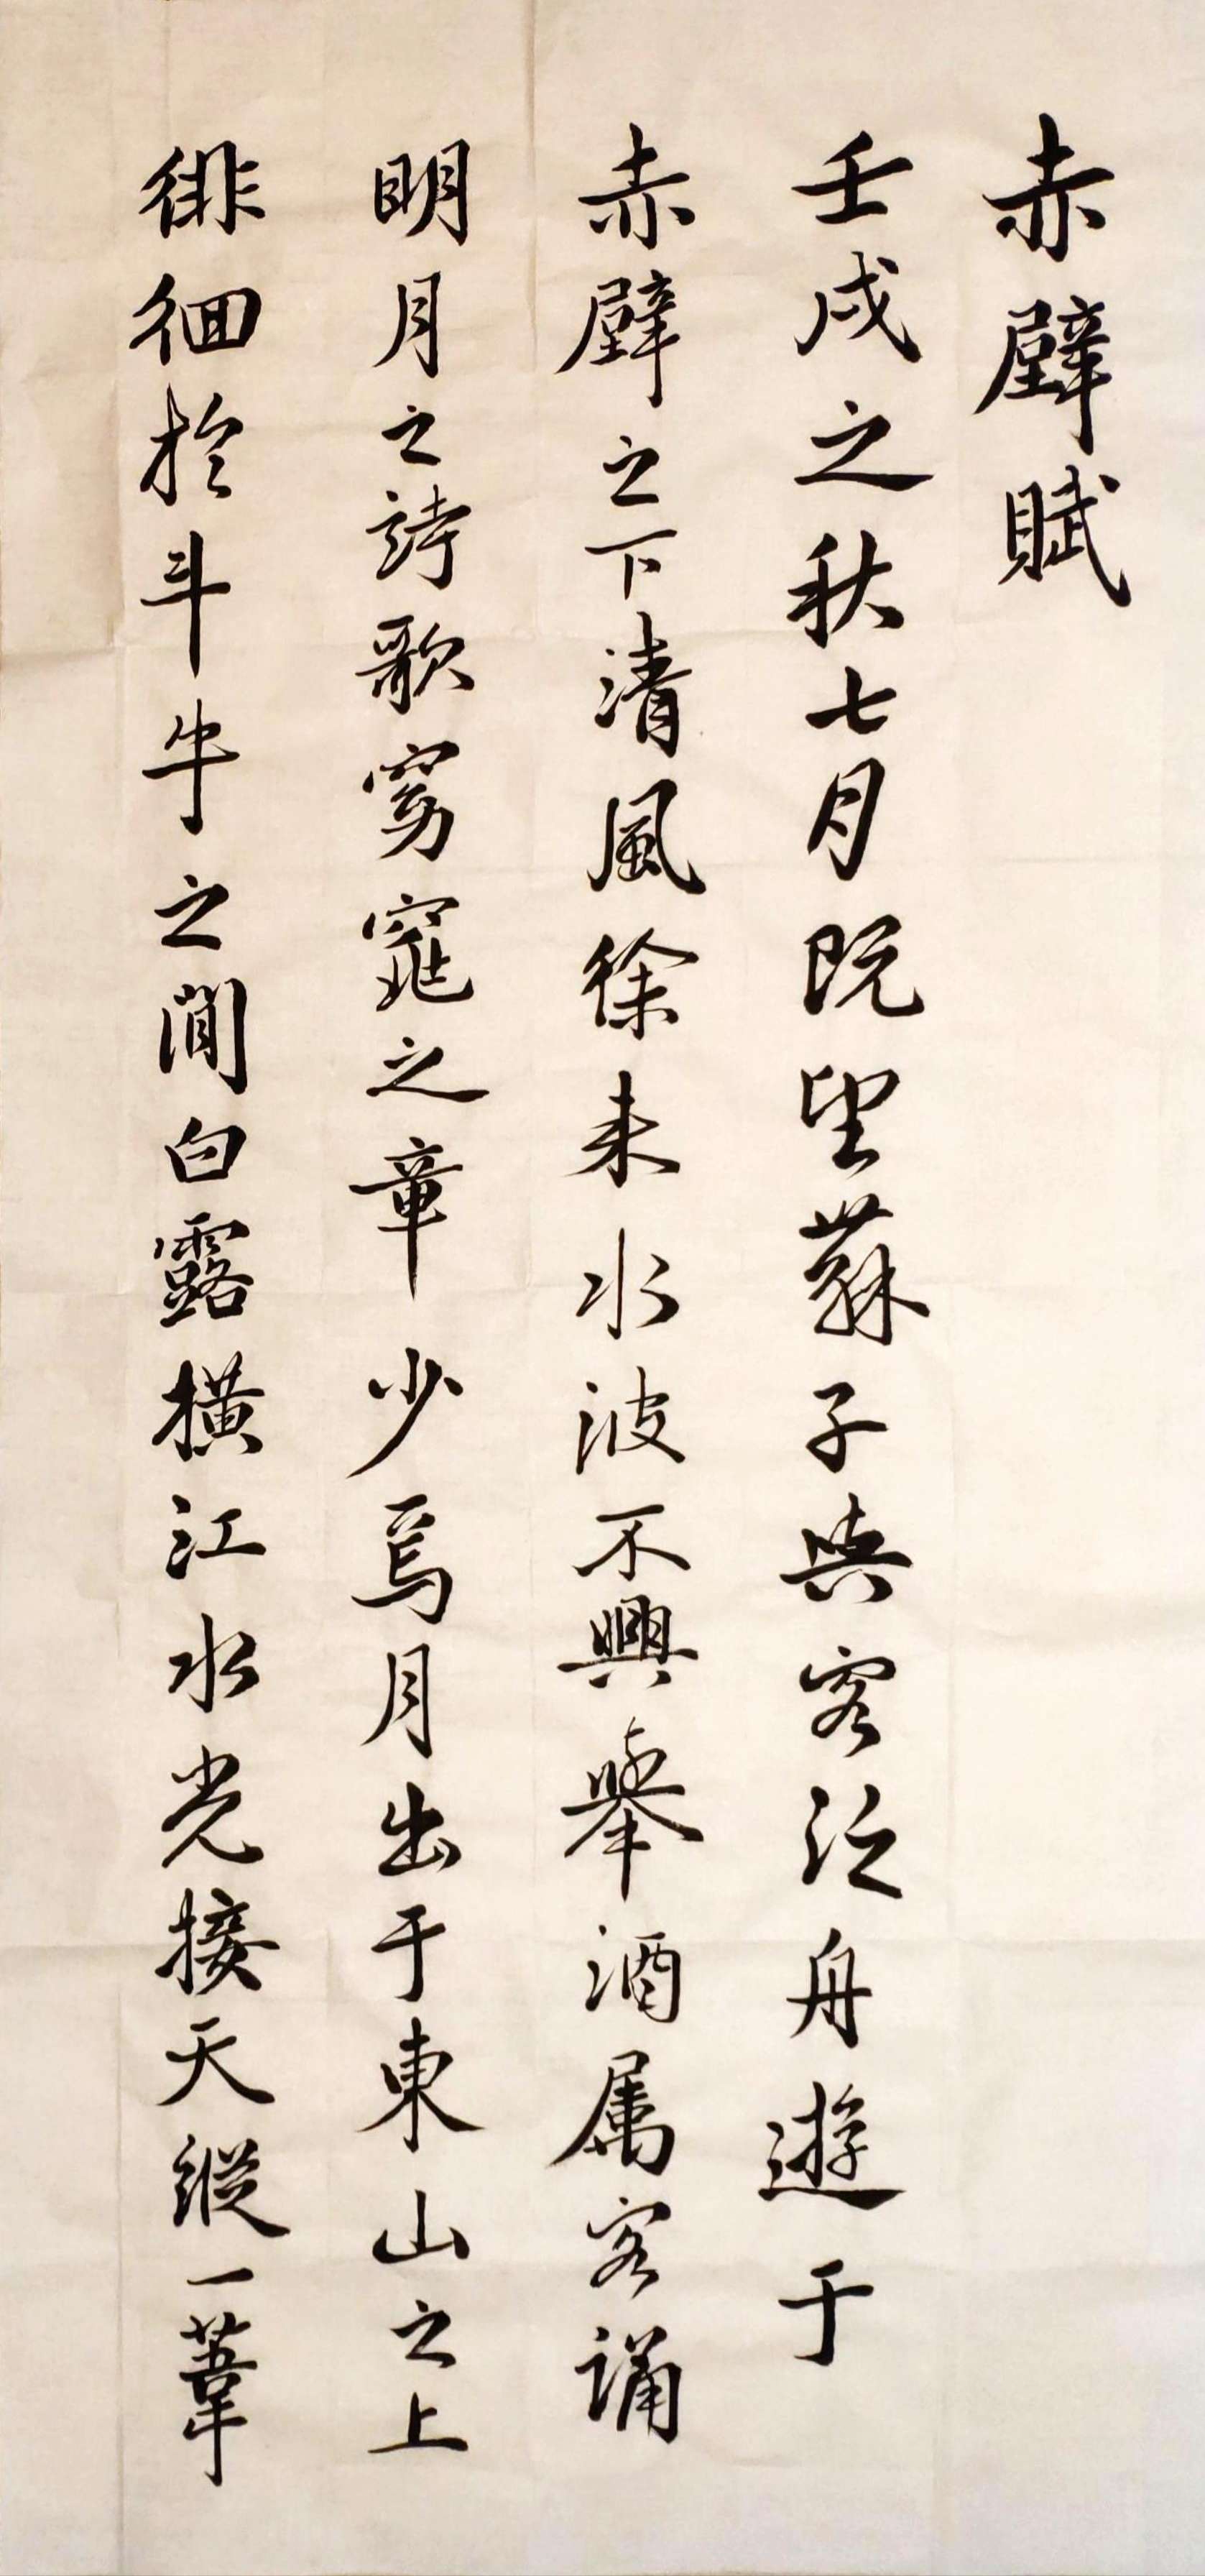 赤壁賦
壬戌之秋七月既望蘇子與客泛舟遊于
赤壁之下清風徐来水波不興舉酒属客誦
明月之詩歌窈窕之章少焉月出于東山之上
徘徊於斗牛之間白露橫江水光接天縱一葦